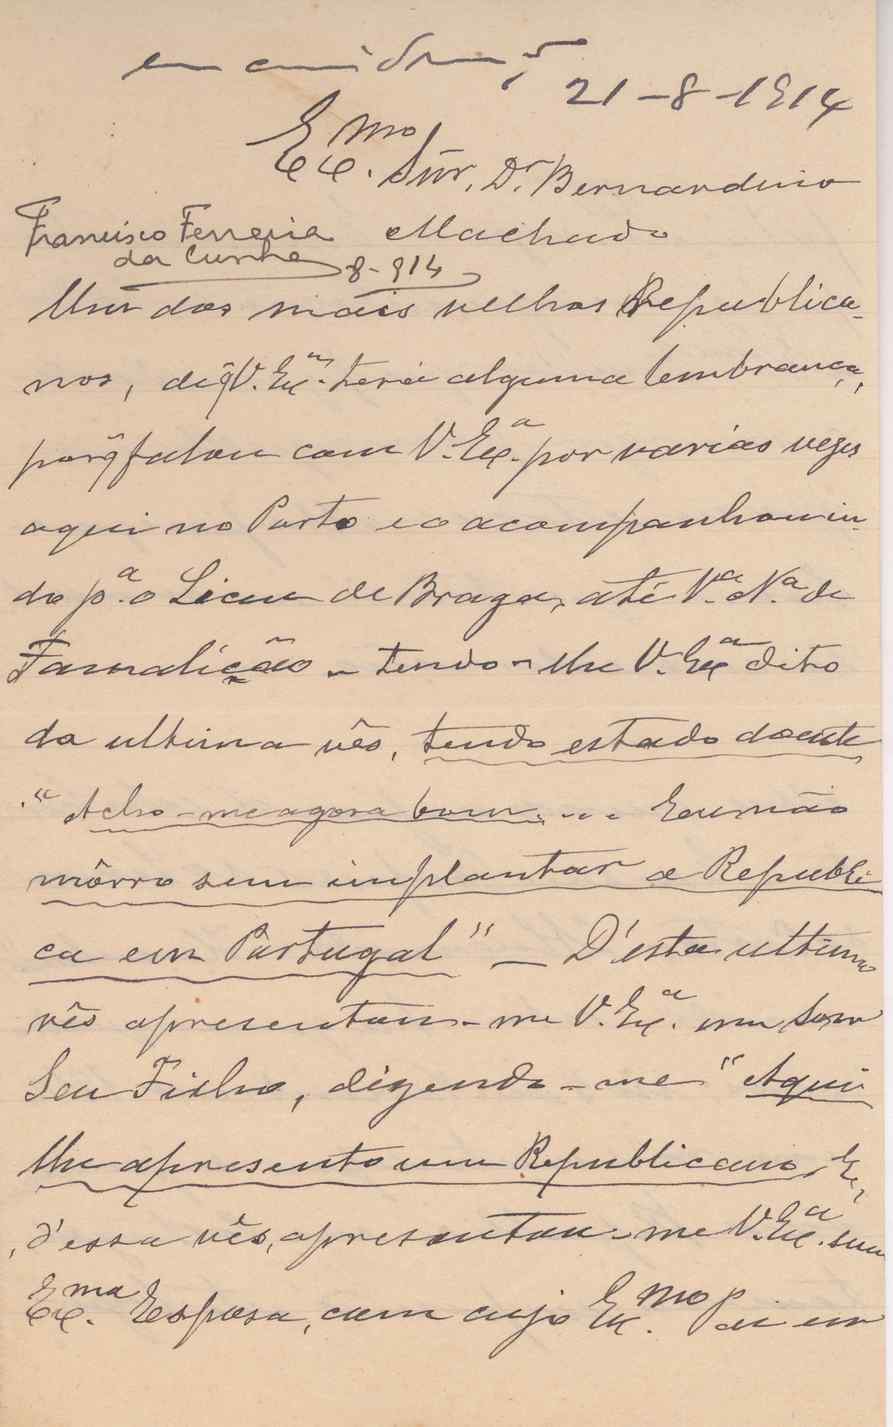 21-8-1914
Exmo. Snr. Dr. Bernardino
Machado
Francisco Ferreira
da Cunha
8-914
Um dos mais velhos Republica-
nos, de q̂ V. Exa. terá alguma lembrança,
porq̂ falou com V. Exa. por varias vezes
aqui no Porto e o acompanhou in-
do pa. o Liceu de Braga, até Va. Na. de
Famalicão – tendo-lhe V. Exa dito
da ultima vês, tendo estado doente
"Acho-me agora bom.... Eu não
môrro sem implantar a Republi-
ca em Portugal" – D'esta ultima
vês apresentou-me V. Exa. um
Seu Filho, dizendo-me "Aqui
lhe apresento um Republicano, E,
d'essa vês, apresentou-me V. Exa. sua
Exma. Esposa, com cujo Exmo Pai em